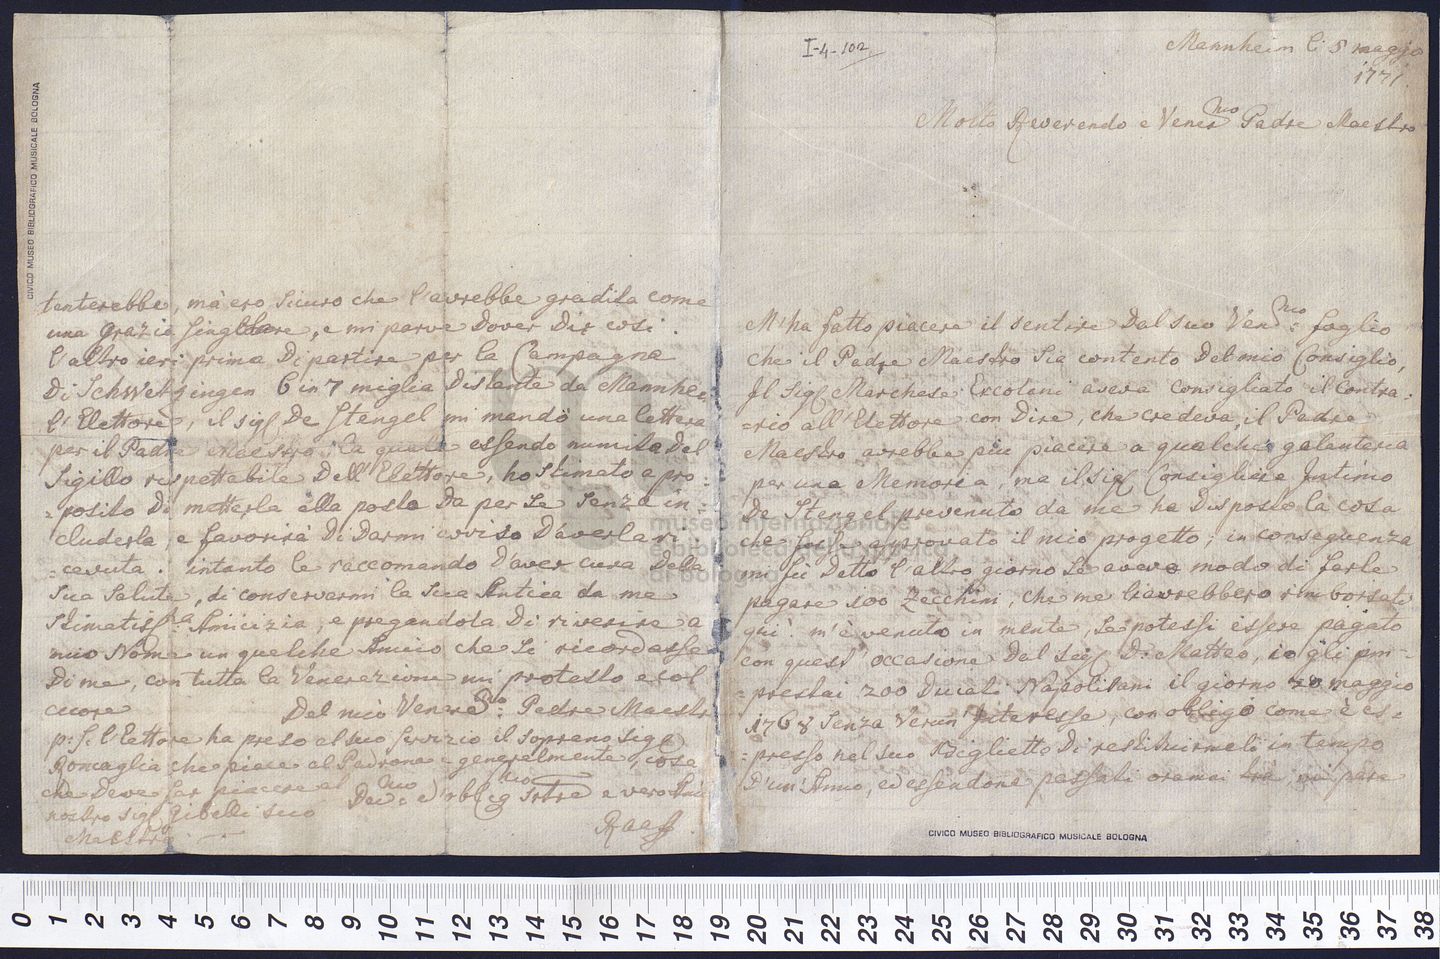 I-4-102
Mannheim li 5 maggio
1771.
Molto Reverendo e Vener.mo Padre Maestro
M'ha fatto piacere il sentire dal suo Ven.mo foglio
che il Padre Maestro sia contento del mio Consiglio,
Il Sig.r Marchese Ercolani aveva consigliato il contra-
-rio all'Elettore con dire, che credeva, il Padre
Maestro avrebbe più piacere a qualche galanteria
per una Memoria, ma il Sig.r Consigliere Intimo
De Stengel prevenuto da me ha disposto la cosa
che fosse approvato il mio progetto; in conseguenza
mi fù detto l'altro giorno se avevo modo di farle
pagare 100 Zecchini, che me li avrebbero rimborsati
quì: m'è venuto in mente, se potessi essere pagato
con quest'occasione dal Sig.r Di Matteo, io gli im-
-prestai 200 Ducati Napolitani il giorno 20 maggio
1768 senza verun interesse, con obligo come è es-
-presso nel suo Biglietto di restituirmeli in tempo
d'un'Anno, ed essendone passati oramai trè, mi pare
tenterebbe, mà ero sicuro che l'avrebbe gradita come
una grazia singulare, e mi parve dover dir così.
l'altro ieri prima di partire per la Campagna
di Schwetzingen 6 in 7 miglia distante da Mannhe.
l'Elettore, il sig.r De Stengel mi mandò una lettera
per il Padre Maestro, la quale essendo munita del
Sigillo rispettabile dell'Elettore, ho stimato a pro-
-posito di metterla alla posta da per se senza in-
cluderla, e favorirà di darmi avviso d'averla ri-
-cevuta. intanto le raccomando d'aver cura della
sua salute, di conservarmi la sua Antica da me
stimatiss.ma Amicizia, e pregandola di riverire a
mio Nome un qualche Amico che si ricordasse
di me, con tutta la Venerazione mi protesto e col
cuore
Del mio Vener.mo Padre Maestr
p: S: l'Elettore ha preso al suo servizio il soprano sig.r
Roncaglia che piace al Padrone e generalmente, cosa
che deve far piacere al
nostro sig.r Gibelli suo
Maestro.
Dev.mo ed oblig.mo Ser.re e vero Am.
Raaff
CIVICO MUSEO BIBLIOGRAFICO MUSICALE BOLOGNA
CIVICO MUSEO BIBLIOGRAFICO MUSICALE BOLOGNA
museo internazionale
e biblioteca della musica
di bologna
0 1 2 3 4 5 6 7 8 9 10 11 12 13 14 15 16 17 18 19 20 21 22 23 24 25 26 27 28 29 30 31 32 33 34 35 36 37 38